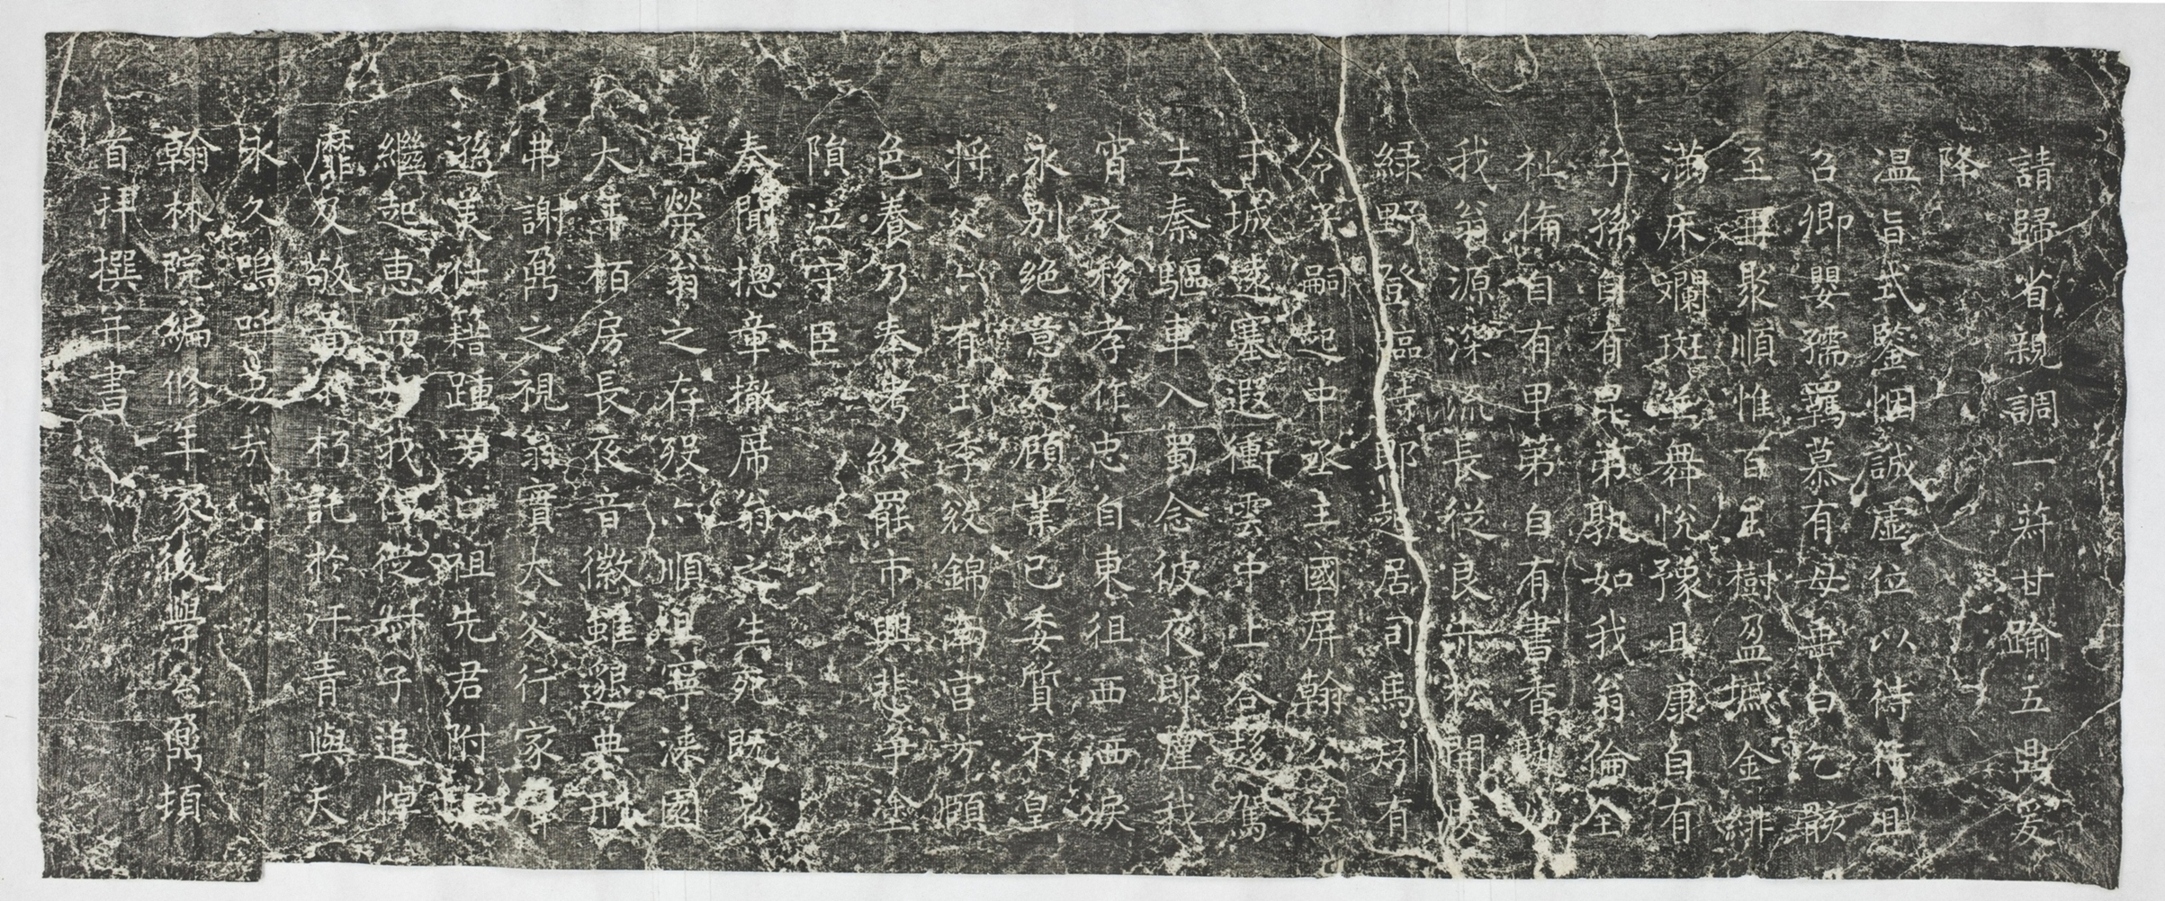 請歸省親調一羿甘踰五鼎爰
降
溫旨式鑒悃誠虛位以待待徂
召卿嬰孺羈慕有母毋白乞骸
至再聚順惟百玉樹盈墀金緋
滿床斕斑舞悅豫且康自有
子孫自有昆弟孰如我翁倫全
祉備自有甲第自有書香
我翁源深流長從良赤松開
綠野登起居司馬矧有
令弟嗣起中丞主國屏翰
于城遠塞遐衝雲中上谷駕
去秦驅車入蜀念彼夜郎崖我
宵衣移孝作忠自東徂西西淚
永別絕意反顧業已委質不皇
將父亦有王季紋錦南宮方願
色養乃奉考終罷市興悲爭塗
隕泣守臣
奏聞揔章撤席翁之生死既哀
且榮翁之存歿亦順且寧溱園
大年栢房長夜音徽雖邈典刑
弗謝矧之視翁實大父行家
遜業仕籍踵芳祖先君附
繼起惠而我侄從好子追悼
靡及敬不朽託於汗青與天
永久嗚呼哉
翰林院編修年家後學頓
首拜撰并書